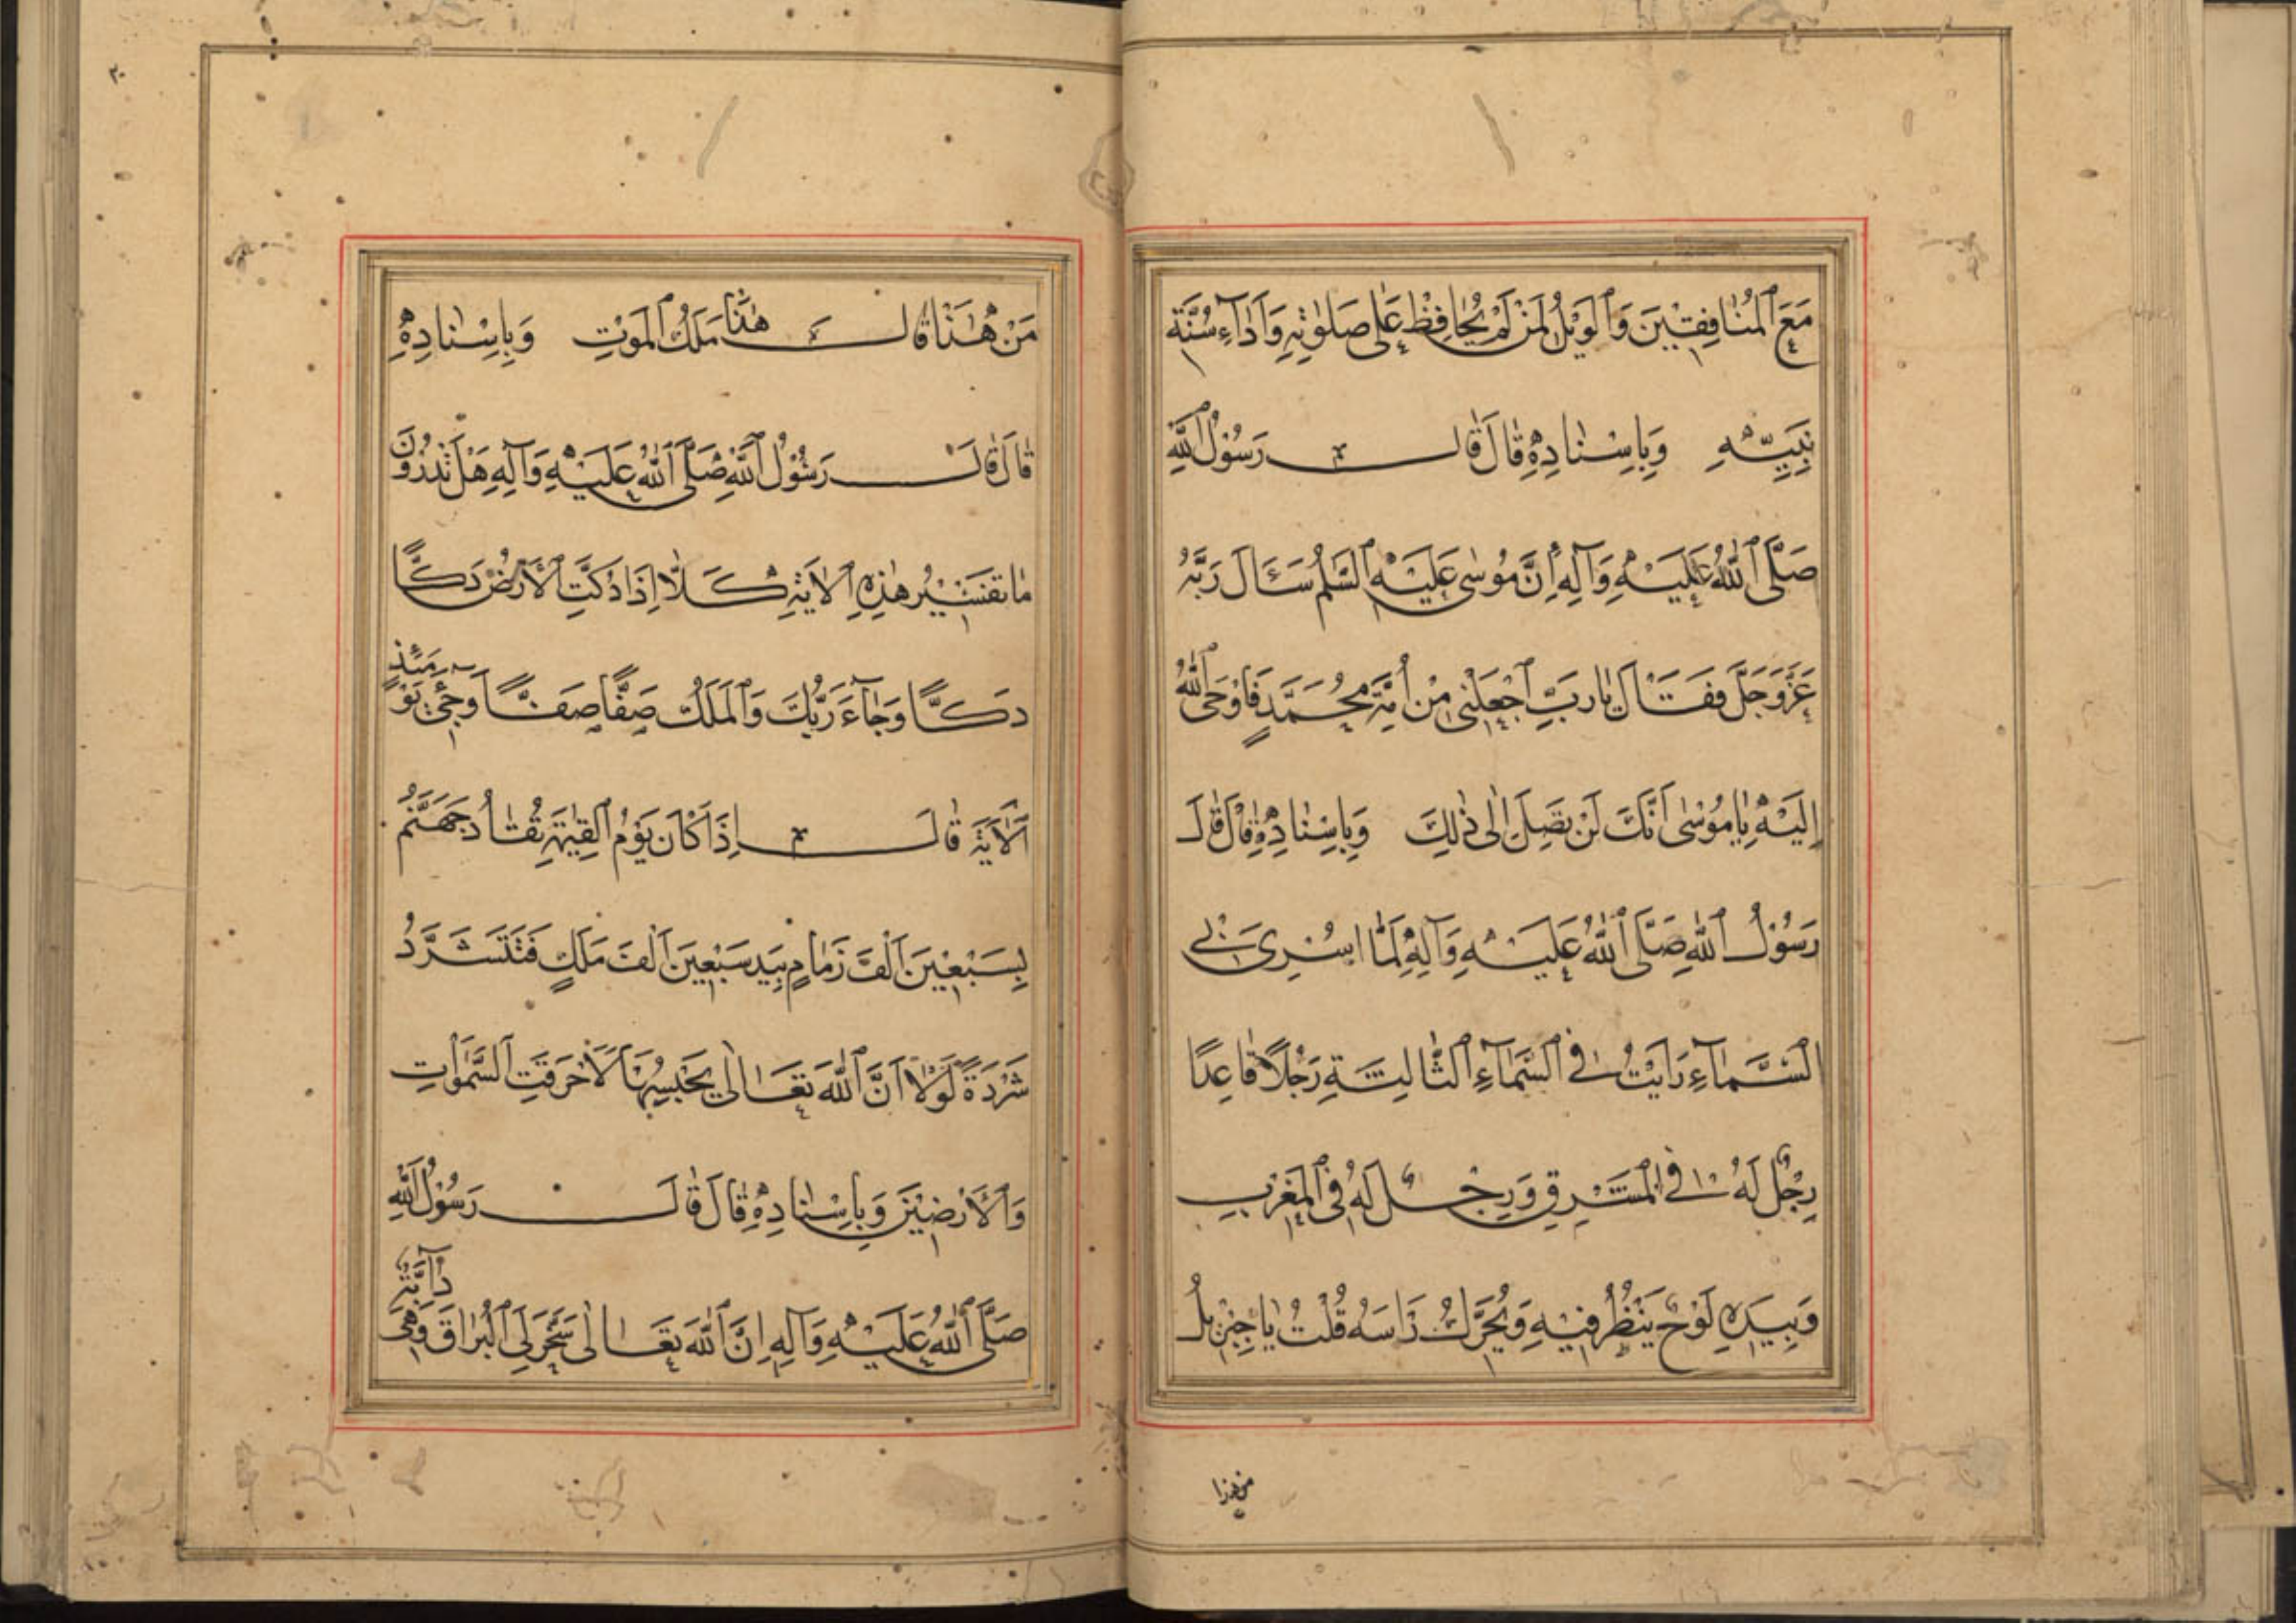 مَعَ ٱلْمُنَافِقِينَ وَٱلْوَيْلُ لِمَنْ لَمْ يُحَافِظْ عَلَى صَلَوٰتِهِ وَأَدَآءِ سُنَّةِ
نَبِيِّهِ وَبِإِسْنَادِهِ قَالَ قَالَ رَسُولُ ٱللَّهِ
صَلَّى ٱللَّهُ عَلَيْهِ وَآلِهِ إِنَّ مُوسَى عَلَيْهِ ٱلسَّلٰمُ سَئَالَ رَبَّهُ
عَزَّوَجَلَّ فَقَالَ يَارَبِّ ٱجْعَلْنِي مِنْ أُمَّةِ مُحَمَّدٍ فَاَوْحَى ٱللَّهُ
إِلَيْهِ يَا مُوسَى أَنَّكَ لَنْ تَصِلَ إِلَى ذٰلِكَ وَبِإِسْنَادِهِ قَالَ قَالَ
رَسُولُ ٱللَّهِ صَلَّى ٱللَّهُ عَلَيْهِ وَآلِهِ لَمَّا اُسْرِىَ بِي
اِلَى السَّمَآءِ رَاَيْتُ فِي ٱلسَّمَآءِ ٱلثَّالِثَةِ رَجُلًا قَاعِدًا
رِجْلٌ لَهُ فِي ٱلْمَشْرِقِ وَرِجْلٌ لَهُ فِي ٱلْمَغْرِبِ
وَبِيَدِهِ لَوْحٌ يَنْظُرُ فِيهِ وَيُحَرِّكُ رَاسَهُ قُلْتُ يَا جِبْرِيلُ
من هذا
٣٠
مَنْ هٰذَا قَالَ هٰذَا مَلَكُ ٱلْمَوْتِ وَبِإِسْنَادِهِ
قَالَ قَالَ رَسُولُ ٱللَّهِ صَلَّى ٱللَّهُ عَلَيْهِ وَآلِهِ هَلْ تَدْرُونَ
مَا تَفْسِيرُ هٰذِهِ ٱلْاٰيَةِ كَلَّا اِذَا دُكَّتِ ٱلْأَرْضُ دَكًّا
دَكًّا وَجَآءَ رَبُّكَ وَٱلْمَلَكُ صَفًّا صَفًّا وَجِيۤءَ يَوْمَئِذٍ
ٱلْاٰيَةَ قَالَ اِذَا كَانَ يَوْمُ ٱلْقِيٰمَةِ تُقَادُ جَهَنَّمُ
بِسَبْعِينَ اَلْفَ زَمَامٍ بِيَدِ سَبْعِينَ اَلْفَ مَلَكٍ فَتَشَرَّدُ
شَرْدَةً لَوْلَا اَنَّ ٱللَّهَ تَعَالَى يَحْبِسُهَا لَاَحْرَقَتِ ٱلسَّمٰوَاتِ
وَٱلْأَرَضِينَ وَبِإِسْنَادِهِ قَالَ قَالَ رَسُولُ ٱللَّهِ
صَلَّى ٱللَّهُ عَلَيْهِ وَآلِهِ اِنَّ ٱللَّهَ تَعَالَى سَخَّرَ لِيَ ٱلْبُرَاقَ وَهِيَ دَآبَّةٌ